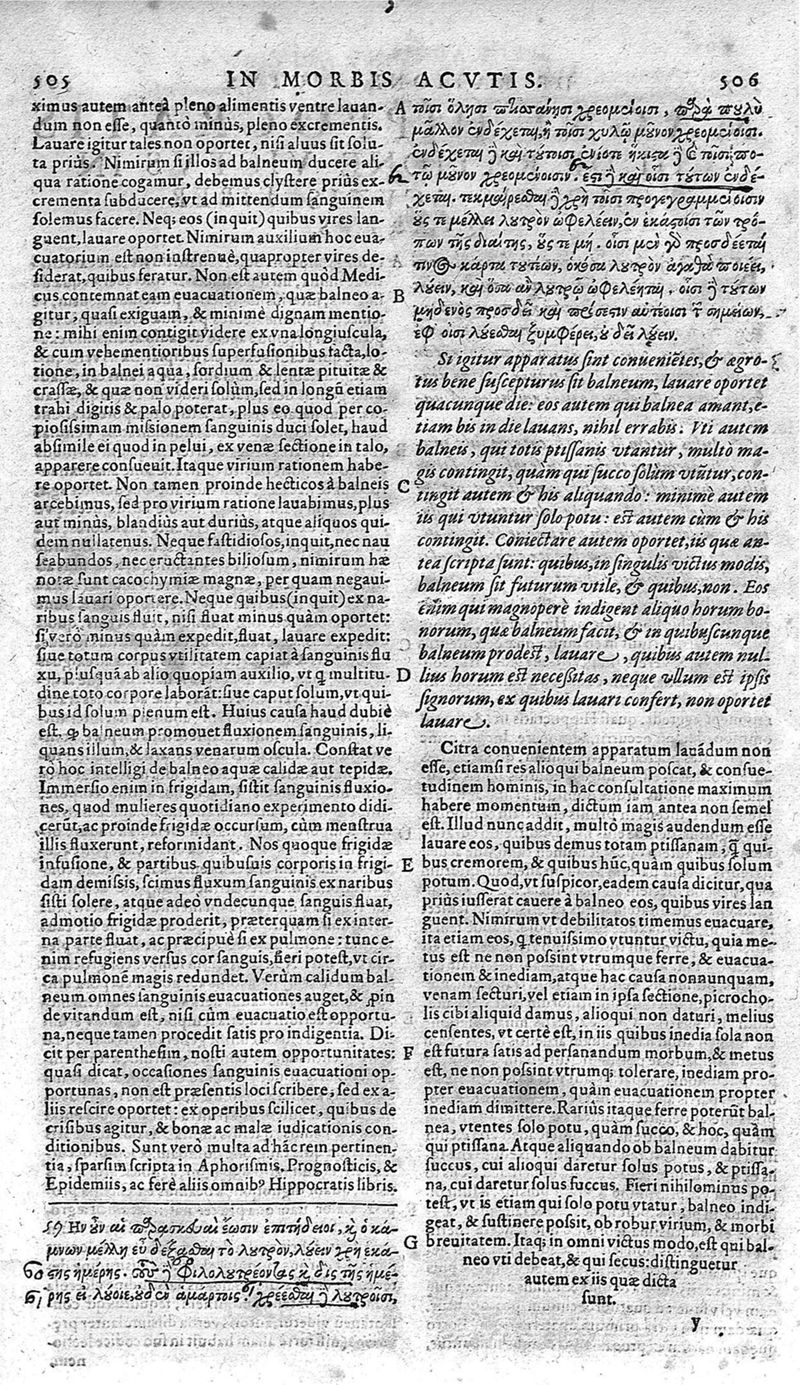 505 IN MORBIS ACVTIS. 506
ximus autem anteà pleno alimentis ventre lauan-
dum non esse, quantò minùs, pleno excrementis.
Lauare igitur tales non oportet, nisi aluus sit solu-
ta priùs. Nimirum si illos ad balneum ducere ali-
qua ratione cogamur, debemus clystere priùs ex-
crementa subducere, vt ad mittendum sanguinem
solemus facere. Neq; eos (inquit) quibus vires lan-
guent, lauare oportet. Nimirum auxilium hoc eua-
cuatorium est non instrenuè, quapropter vires de-
siderat, quibus feratur. Non est autem quòd Medi-
cus contemnat eam euacuationem, quæ balneo a-
gitur, quasi exiguam, & minimè dignam mentio-
ne: mihi enim contigit videre ex vna longiuscula,
& cum vehementioribus superfusionibus facta, lo-
tione, in balnei aqua, sordium & lentæ pituitæ &
crassæ, & quæ non videri solùm, sed in longũ etiam
trahi digitis & palo poterat, plus eo quod per co-
piosissimam missionem sanguinis duci solet, haud
absimile ei quod in pelui, ex venæ sectione in talo,
apparere consueuit. Itaque virium rationem habe-
re oportet. Non tamen proinde hecticos à balneis
arcebimus, sed pro virium ratione lauabimus, plus
aut minùs, blandiùs aut duriùs, atque aliquos qui-
dem nullatenus. Neque fastidiosos, inquit, nec nau
seabundos, nec eructantes biliosum, nimirum hæ
notæ sunt cacochymiæ magnæ, per quam negaui-
mus lauari oportere. Neque quibus (inquit) ex na-
ribus sanguis fluit, nisi fluat minus quàm oportet:
si verò minus quàm expedit, fluat, lauare expedit:
siue totum corpus vtilitatem capiat à sanguinis flu
xu, priusquã ab alio quopiam auxilio, vt q̃ multitu-
dine toto corpore laborãt: siue caput solum, vt qui-
bus id solum plenum est. Huius causa haud dubiè
est. q̃ balneum promouet fluxionem sanguinis, li-
quans illum, & laxans venarum oscula. Constat ve
rò hoc intelligi de balneo aquæ calidæ aut tepidæ.
Immersio enim in frigidam, sistit sanguinis fluxio-
nes, quod mulieres quotidiano experimento didi-
cerũt, ac proinde frigidæ occursum, cùm menstrua
illis fluxerunt, reformidant. Nos quoque frigidæ
infusione, & partibus quibusuis corporis in frigi-
dam demissis, scimus fluxum sanguinis ex naribus
sisti solere, atque adeò vndecunque sanguis fluat,
admotio frigidæ proderit, præterquam si ex inter-
na parte fluat, ac præcipuè si ex pulmone: tunc e-
nim refugiens versus cor sanguis, fieri potest, vt cir-
ca pulmonẽ magis redundet. Verùm calidum bal-
neum omnes sanguinis euacuationes auget, & proin
de vitandum est, nisi cùm euacuatio est opportu-
na, neque tamen procedit satis pro indigentia. Di-
cit per parenthesim, nosti autem opportunitates:
quasi dicat, occasiones sanguinis euacuationi op-
portunas, non est præsentis loci scribere, sed ex a-
liis rescire oportet: ex operibus scilicet, quibus de
crisibus agitur, & bonæ ac malæ iudicationis con-
ditionibus. Sunt verò multa ad hãc rem pertinen-
tia, sparsim scripta in Aphorismis, Prognosticis, &
Epidemiis, ac ferè aliis omnibꝰ Hippocratis libris.
59 Ην οὖν αἱ παρασκευαὶ ἔωσιν ἐπιτήδειοι, καὶ ὁ κά-
μνων μέλλῃ εὖ δέξασθαι τὸ λουτρὸν, λούειν χρὴ ἑκά-
60 στης ἡμέρης. τοὺς δὲ φιλολουτρέοντας καὶ δὶς τῆς ἡμέ-
61 ρης εἰ λούοις, οὐδὲν ἁμάρτοις. χρέεσθαι δὲ λουτροῖσι,
A τοῖσι ὅλῃσι πτισάνῃσι χρεομένοισι, παρὰ πουλὺ
μᾶλλον ἐνδέχεται, ἢ τοῖσι χυλῷ μοῦνον χρεομένοισι.
ἐνδέχεται δὲ καὶ τούτοισι ἐνίοτε ἥκιστα δὲ καὶ τοῖσι πο-
62 τῷ μοῦνον χρεομένοισιν. ἔστι δὲ καὶ οἷσι τούτων ἐνδέ-
χεται. τεκμαίρεσθαι δὲ χρὴ τοῖσι προγεγραμμένοισιν
οὕς τε μέλλει λουτρὸν ὠφελέειν, ἐν ἑκάστοισι τῶν τρό-
πων τῆς διαίτης, οὕς τε μή. οἷσι μὲν γὰρ προσδέεται
τινος κάρτα τουτέων, ὁκόσα λουτρὸν ἀγαθὰ ποιέει,
B λούειν, καὶ ὅσα ἂν λουτρῷ ὠφελέηται. οἷσι δὲ τούτων
μηδενὸς προσδεῖ καὶ πρόσεστιν αὐτέοισι τῶν σημείων,
ἐφ᾽ οἷσι λούεσθαι ξυμφέρει, οὐ δεῖ λούειν.
Si igitur apparatus sint conueniẽtes, & ægro-
tus bene suscepturus sit balneum, lauare oportet
quacunque die: eos autem qui balnea amant, e-
tiam bis in die lauans, nihil errabis. Vti autem
balneis, qui totis ptissanis vtantur, multò ma-
gis contingit, quàm qui succo solùm vtũtur, con-
C tingit autem & his aliquando: minimè autem
iis qui vtuntur solo potu: est autem cùm & his
contingit. Coniectare autem oportet, iis quæ an-
tea scripta sunt: quibus, in singulis victus modis,
balneum sit futurum vtile, & quibus, non. Eos
enim qui magnoperè indigent aliquo horum bo-
norum, quæ balneum facit, & in quibuscunque
balneum prodest, lauare, quibus autem nul-
D lius horum est necessitas, neque vllum est ipsis
signorum, ex quibus lauari confert, non oportet
lauare.
Citra conuenientem apparatum lauãdum non
esse, etiamsi res alioqui balneum poscat, & consue-
tudinem hominis, in hac consultatione maximum
habere momentum, dictum iam antea non semel
est. Illud nunc addit, multò magis audendum esse
lauare eos, quibus demus totam ptissanam, q̃ qui-
E bus cremorem, & quibus hũc, quàm quibus solum
potum. Quod, vt suspicor, eadem causa dicitur, qua
priùs iusserat cauere à balneo eos, quibus vires lan
guent. Nimirum vt debilitatos timemus euacuare,
ita etiam eos, q̃ tenuissimo vtuntur victu, quia me-
tus est ne non possint vtrumque ferre, & euacua-
tionem & inediam, atque hac causa nonnunquam,
venam secturi, vel etiam in ipsa sectione, picrocho-
lis cibi aliquid damus, alioqui non daturi, melius
censentes, vt certè est, in iis quibus inedia sola non
F est futura satis ad persanandum morbum, & metus
est, ne non possint vtrumq; tolerare, inediam pro-
pter euacuationem, quàm euacuationem propter
inediam dimittere. Rariùs itaque ferre poterũt bal-
nea, vtentes solo potu, quàm succo, & hoc, quàm
qui ptissana. Atque aliquando ob balneum dabitur
succus, cui alioqui daretur solus potus, & ptissa-
na, cui daretur solus succus. Fieri nihilominus po-
test, vt is etiam qui solo potu vtatur, balneo indi-
geat, & sustinere possit, ob robur virium, & morbi
G breuitatem. Itaq; in omni victus modo, est qui bal-
neo vti debeat, & qui secus: distinguetur
autem ex iis quæ dicta
sunt.
y